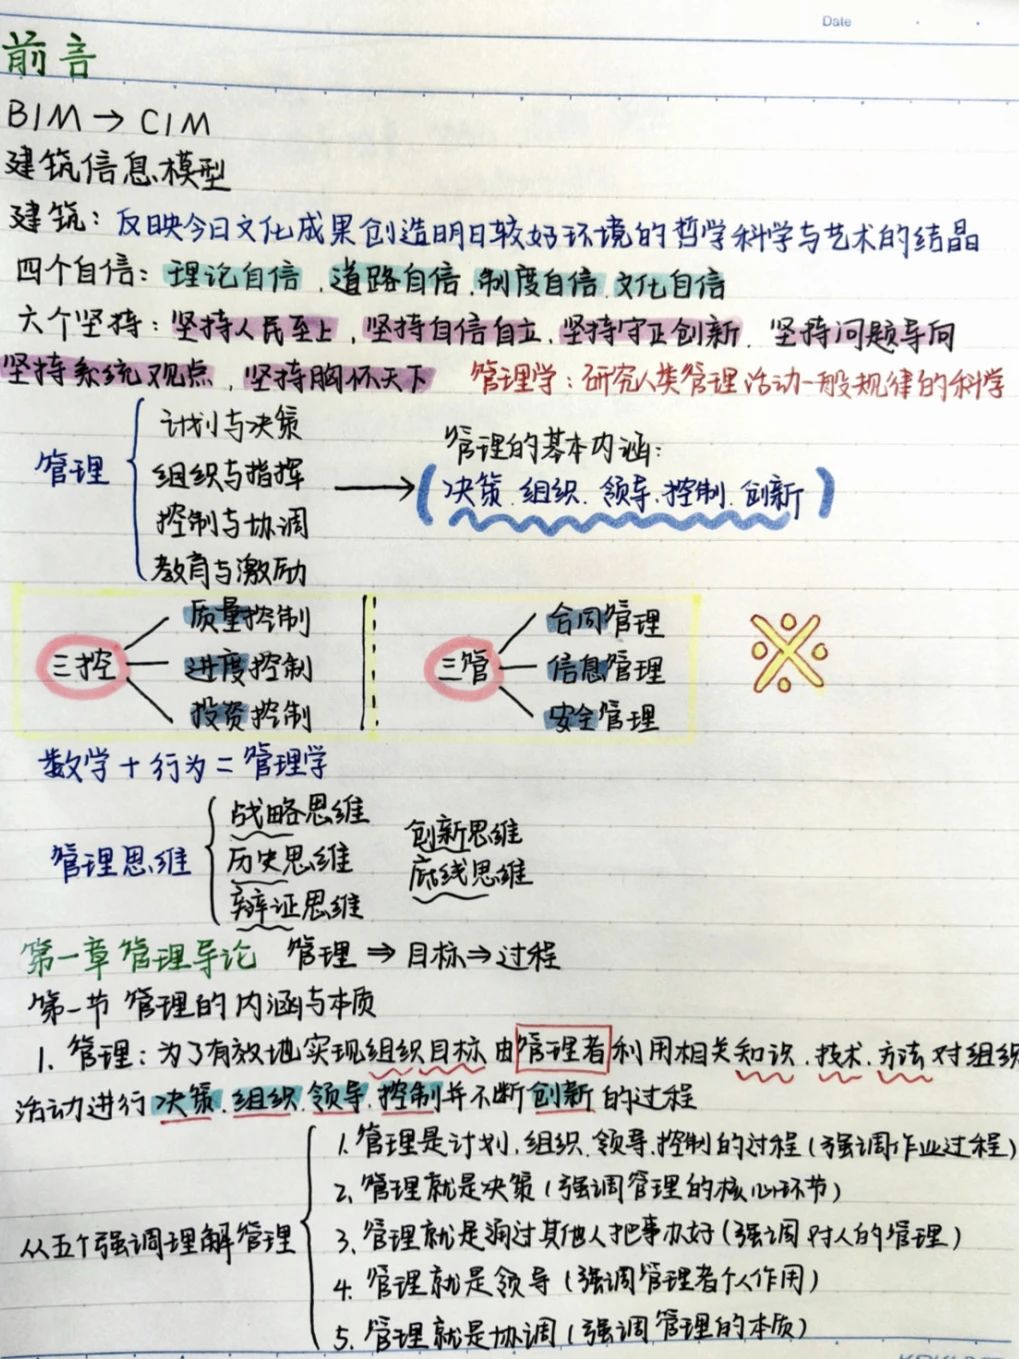 Date
前言
BIM→CIM
建筑信息模型
建筑：反映今日文化成果创造明日较好环境的哲学科学与艺术的结晶
四个自信：理论自信、道路自信、制度自信、文化自信
六个坚持：坚持人民至上，坚持自信自立，坚持守正创新、坚持问题导向
坚持系统观点，坚持胸怀天下 管理学：研究人类管理活动一般规律的科学
管理
计划与决策
组织与指挥
控制与协调
教育与激励
→
管理的基本内涵：
(决策、组织、领导、控制、创新)
三控
质量控制
进度控制
投资控制
三管
合同管理
信息管理
安全管理
※
数学+行为=管理学
管理思维
战略思维
历史思维
辩证思维
创新思维
底线思维
第一章管理导论 管理⇒目标⇒过程
第一节 管理的内涵与本质
1. 管理：为了有效地实现组织目标由管理者利用相关知识、技术、方法对组织
活动进行决策、组织、领导、控制并不断创新的过程
从五个强调理解管理
1. 管理是计划、组织、领导、控制的过程(强调作业过程)
2. 管理就是决策(强调管理的核心环节)
3. 管理就是通过其他人把事办好(强调对人的管理)
4. 管理就是领导(强调管理者个人作用)
5. 管理就是协调(强调管理的本质)